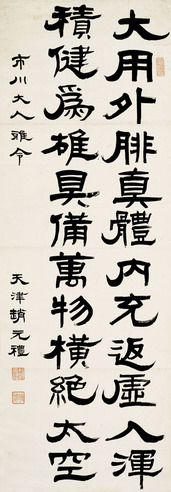 大用外腓真體內充返虛入渾
積健爲雄具備萬物橫絕太空
市川大人雅令
天津趙元禮